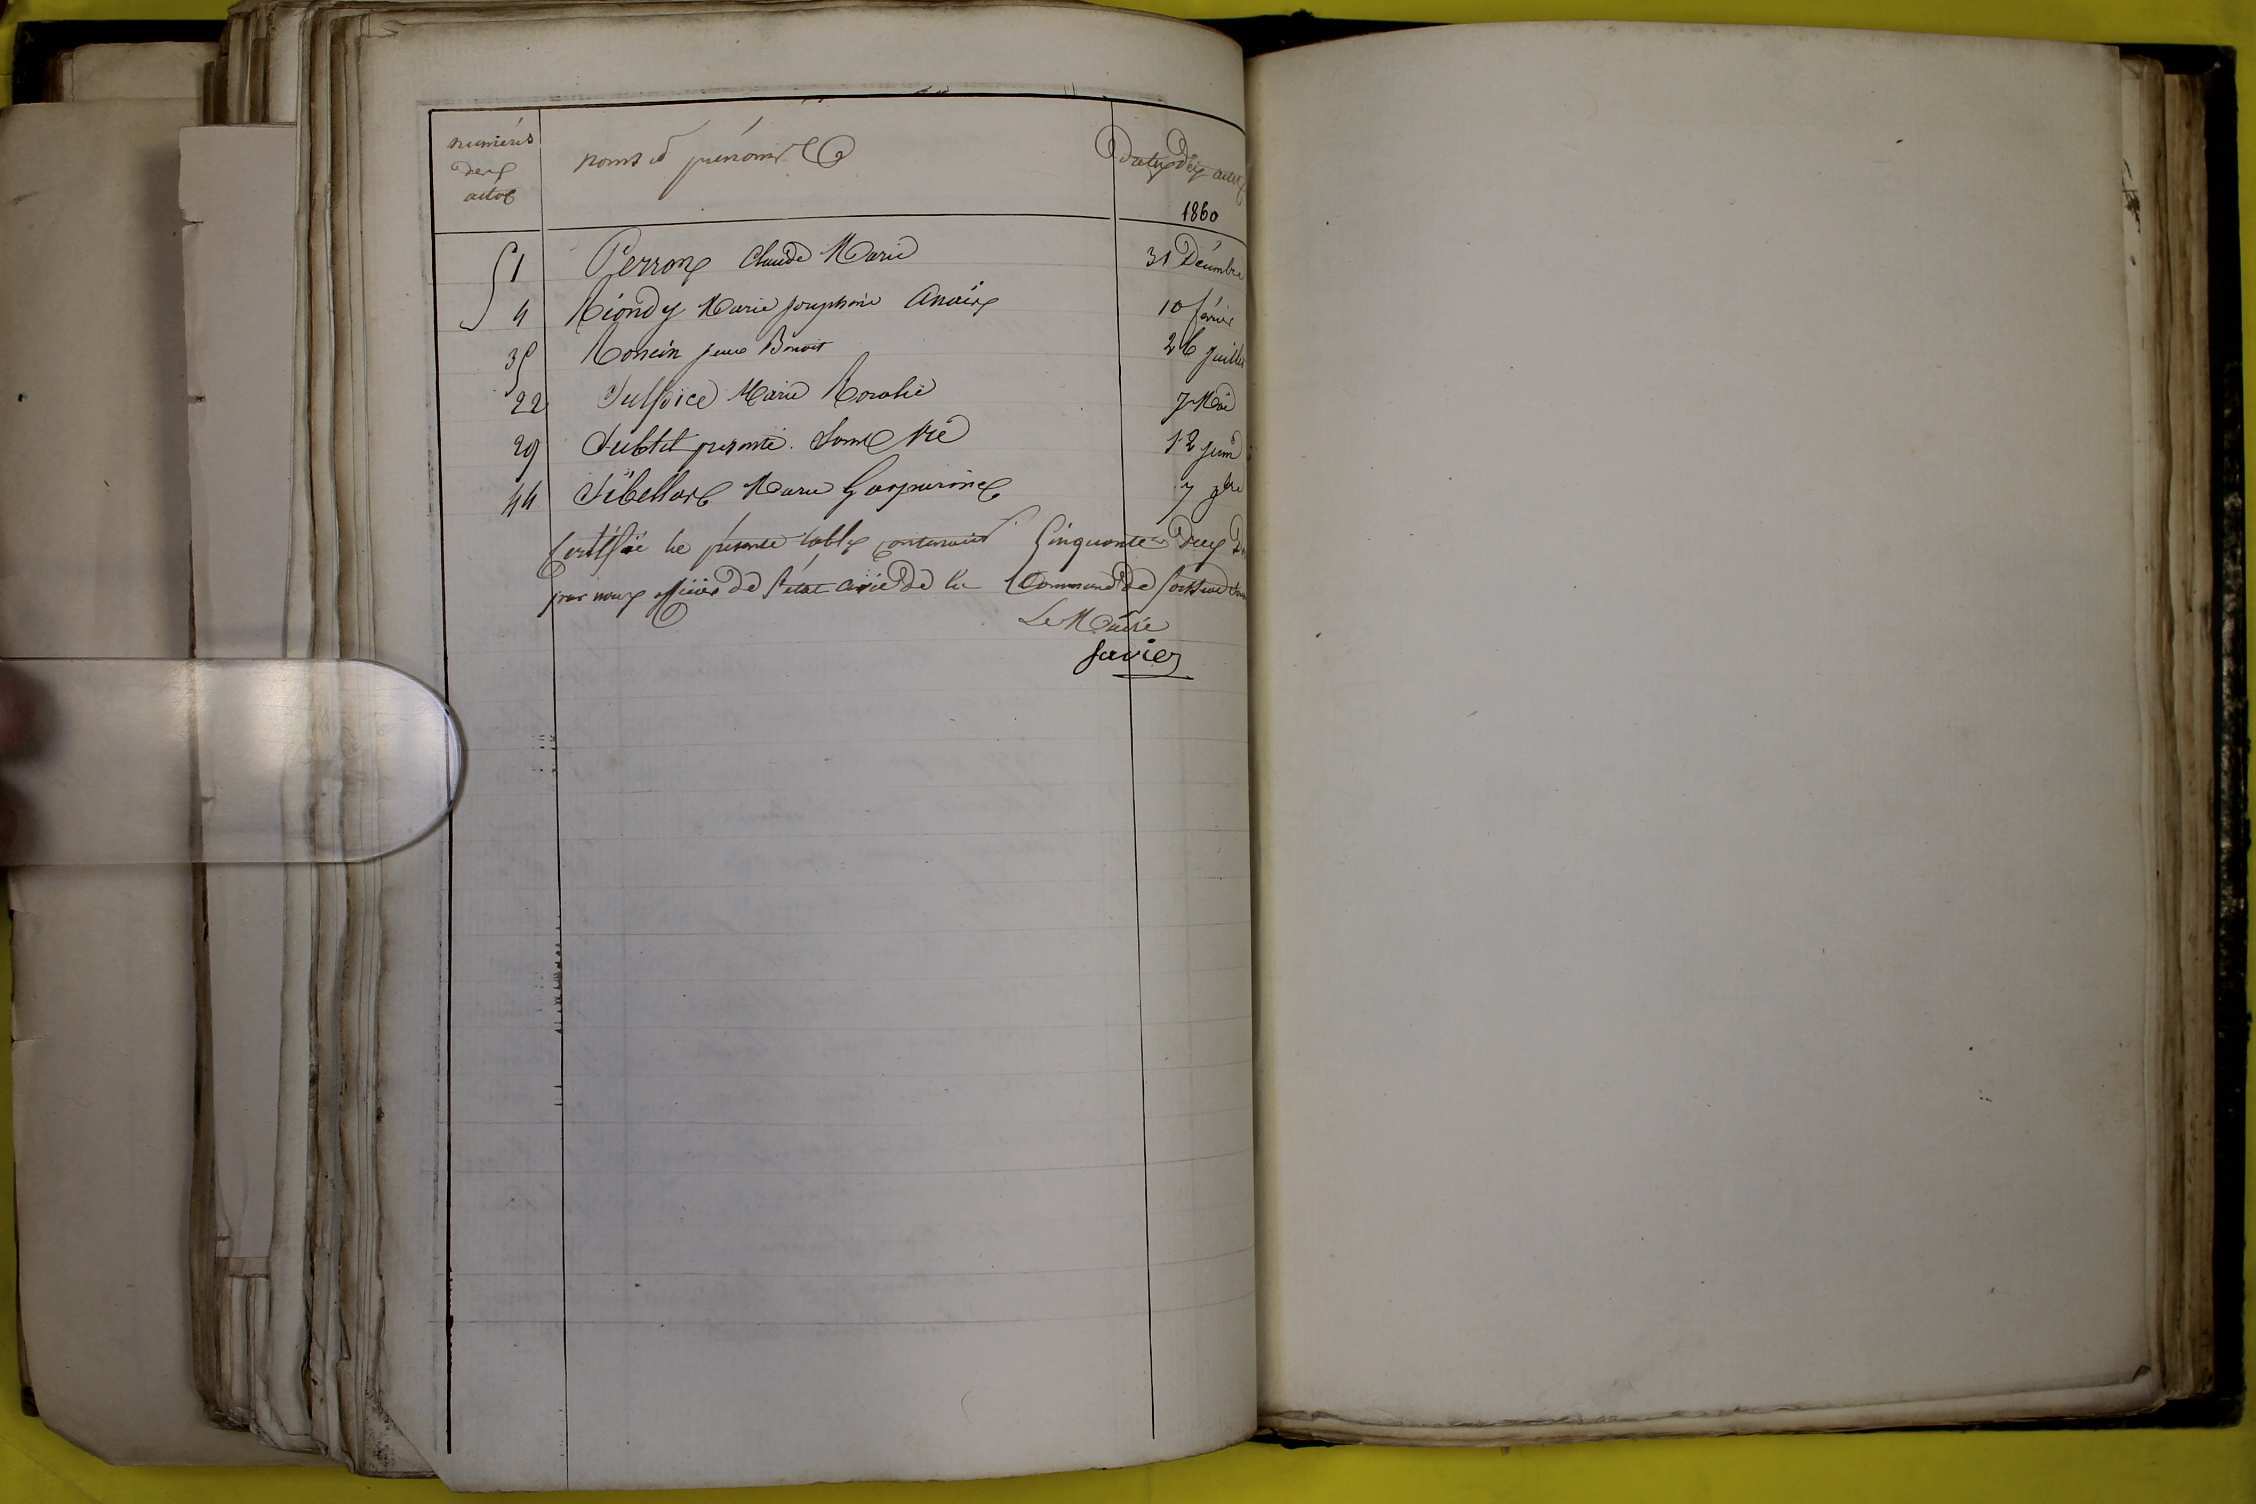 numéros des actes
noms et prénoms
dates des actes
1860
51 Perron Claude Marie 31 Décembre
4 Riondy Marie Josephine Anaïs 10 février
35 Roncin Jean Benoit 26 juillet
22 Sulpice Marie Rosalie 7 Mai
29 Subtil présenté Sans Vie 12 juin
44 Tibellas Marie Gasparine 7 9bre
Certifié la présente table contenant Cinquante deux
par nous officier de l'état civil de la Commune de
Le Maire
Javier